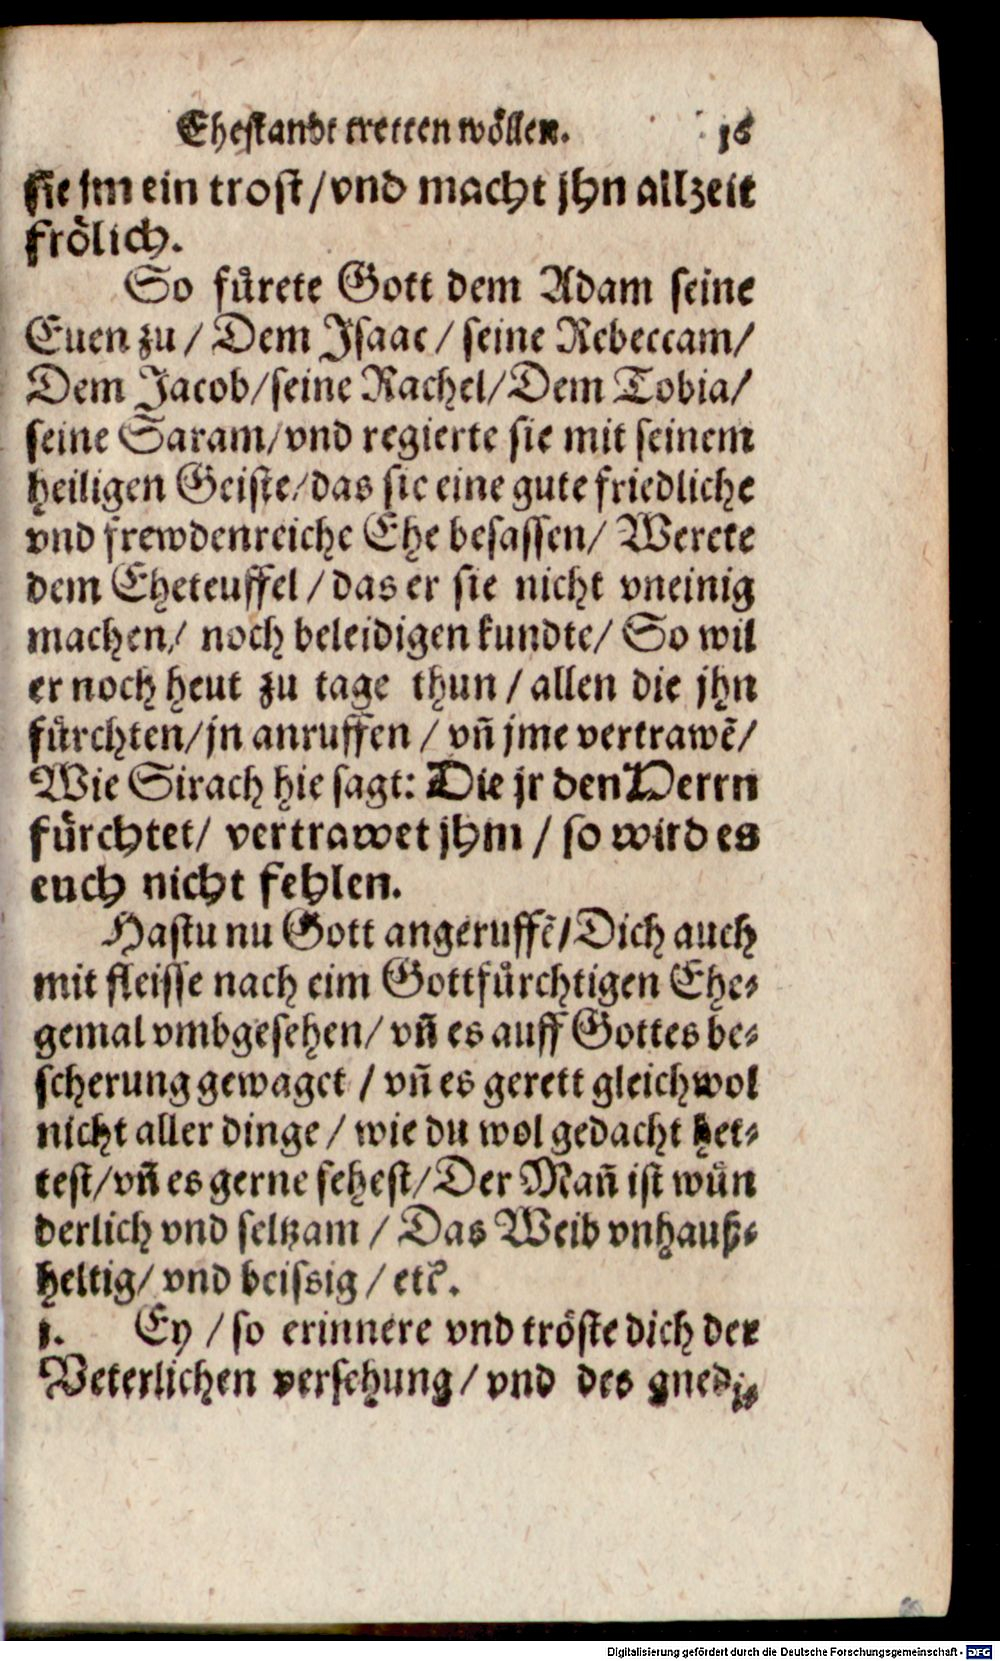 Ehestandt tretten wöllen. 16
sie jm ein trost/vnd macht jhn allzeit
frölich.
So fuͤrete Gott dem Adam seine
Euen zu/ Dem Isaac/ seine Rebeccam/
Dem Jacob/seine Rachel/Dem Tobia/
seine Saram/vnd regierte sie mit seinem
heiligen Geiste/das sie eine gute friedliche
vnd frewdenreiche Ehe besassen/ Werete
dem Eheteuffel/das er sie nicht vneinig
machen/ noch beleidigen kundte/ So wil
er noch heut zu tage thun/allen die jhn
fuͤrchten/jn anruffen/vn̄ jme vertrawē/
Wie Sirach hie sagt: Die jr den Herrn
fuͤrchtet/ vertrawet jhm/so wird es
euch nicht fehlen.
Hastu nu Gott angeruffē/Dich auch
mit fleisse nach eim Gottfuͤrchtigen Ehe⸗
gemal vmbgesehen/ vn̄ es auff Gottes be⸗
scherung gewaget/vn̄ es gerett gleichwol
nicht aller dinge/ wie du wol gedacht het⸗
test/vn̄ es gerne sehest/Der Man̄ ist wuͤn
derlich vnd seltzam/ Das Weib vnhauß⸗
heltig/ vnd beissig/etc.
1. Ey/so erinnere vnd tröste dich der
Veterlichen versehung/vnd des gnedi⸗
Digitalisierung gefördert durch die Deutsche Forschungsgemeinschaft - DFG